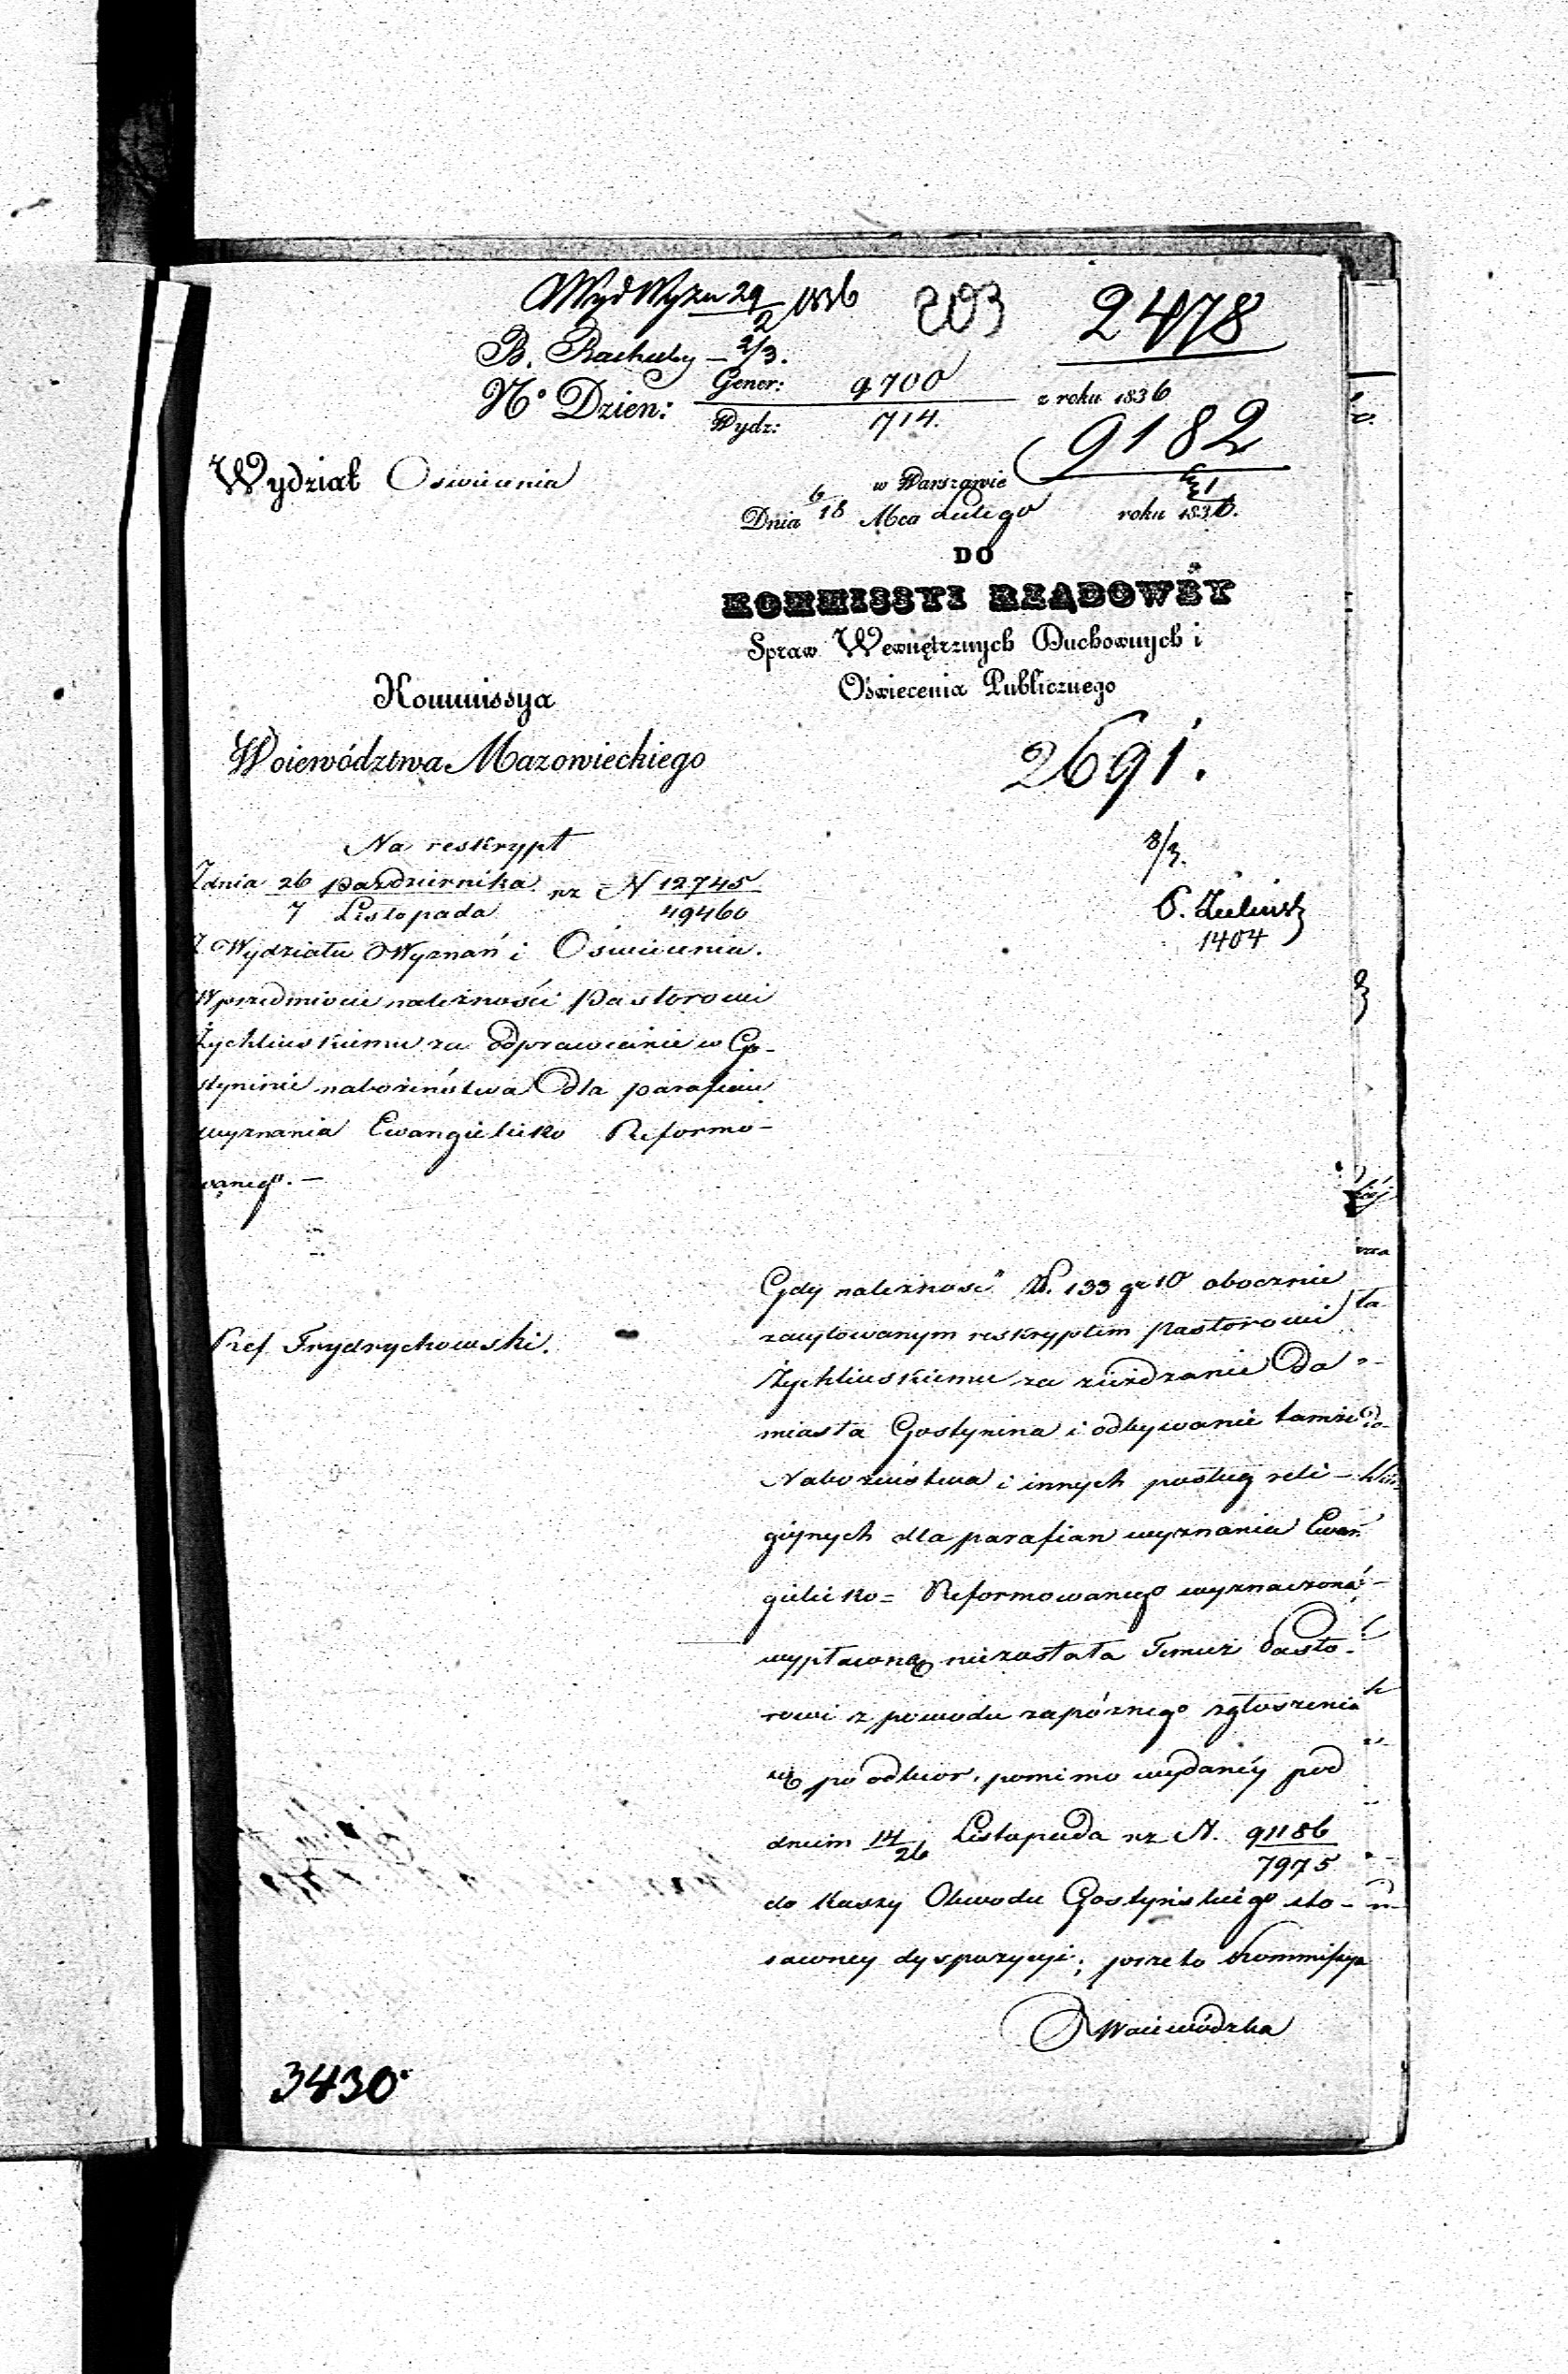 Wyd Wyzn 29/2 1836 203 2478
B. Rachuby – 2/3.
N° Dzien: Gener: 9700 z roku 1836
Wydz: 714. 9182
Wydział Oświecenia
w Warszawie
Dnia 6/18 Mca Lutego roku 1836.
DO
KOMMISSYI RZĄDOWÉY
Spraw Wewnętrznych Duchownych i
Oświecenia Publicznego
Kommissya
Woiewództwa Mazowieckiego
2691.
Na reskrypt
Z dnia 26 Października nr N 12745
7 Listopada 49460
Z Wydziału Wyznań i Oświecenia.
W przedmiocie należności Pastorowi
Żychlińskiemu za odprawianie w Go-
styninie nabożeństwa dla parafian
wyznania Ewangielicko Reformo-
wanego. –
8/3.
1404
Ref Frydrychowski.
Gdy należność Zł. 133 gr 10 obocznie
zacytowanym reskryptem Pastorowi
Żychlińskiemu za zieżdżanie do
miasta Gostynina i odbywanie tamże
Nabożeństwa i innych posług reli-
giynych dla parafian wyznania Ewan
gielicko= Reformowanego wyznaczona
wypłaconą niezostała Temuż Pasto-
rowi z powodu zapóznego zgłoszenia
się po odbior, pomimo wydanéy pod
dniem 14/26 Listopada nr N. 91186
7975
do Kassy Obwodu Gostyńskiego sto-
sowney dyspozycyi; przeto Kommissya
Woiewódzka
3430